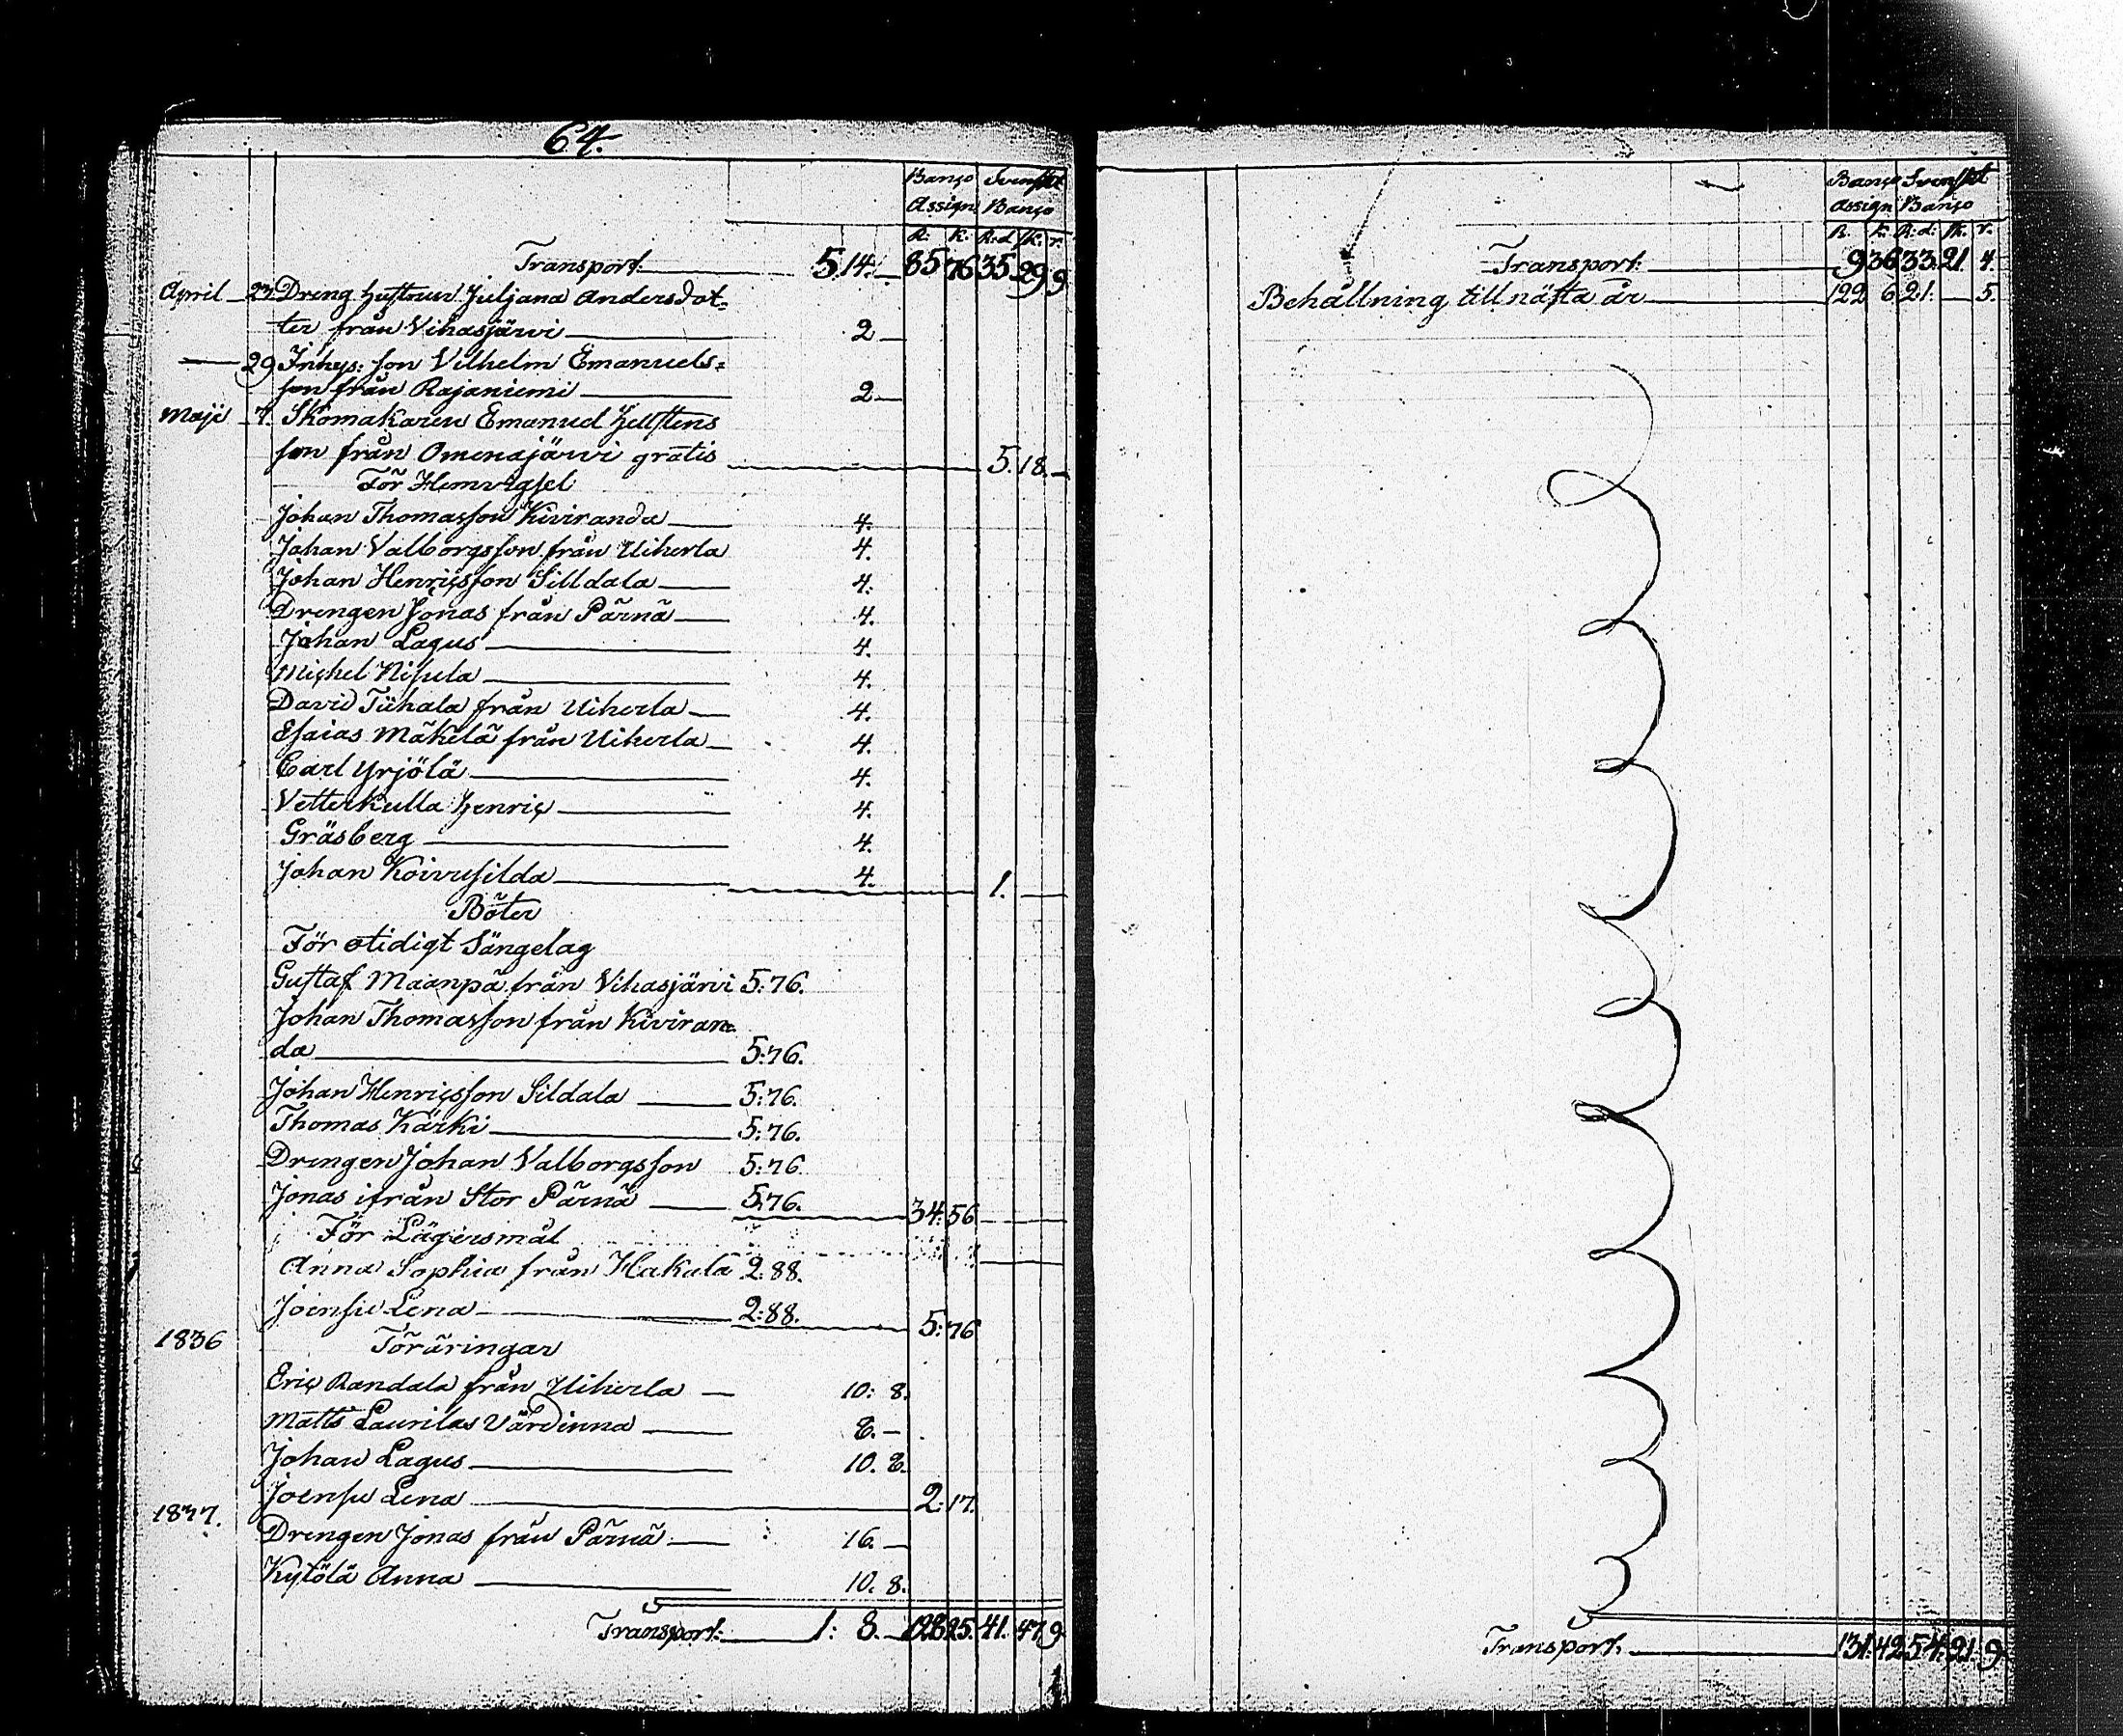 64.
Banco Svenskt
Assign Banco
R: k: R:d. sk. r.
Transport: 5.14. 85 76 35 29 9
April 23. Dreng hustrun Juljana Andersdot-
ter från Vihasjärvi 2
29 Inhys: son Vilhelm Emanuels-
son från Rajaniemi 2
Maji 7. Skomakaren Emanuel Hellstens
son från Omenajärvi gratis 5. 18.
För Hemvigsel
Johan Thomasson Kiviranda 4.
Johan Valborgsson från Uiherla 4.
Johan Henricsson Silldala 4.
Drengen Jonas från Pärnä 4.
Johan Lagus 4.
Michel Nisula 4.
David Tühala från Uiherla 4.
Esaias Mäkelä från Uiherla 4.
Carl Yrjölä 4.
Vetterkulla Henric 4.
Gräsberg 4.
Johan Koivusilda 4. 1.
Böter
För otidigt Sängelag
Gustaf Maanpä från Vihasjärvi 5:76.
Johan Thomasson från Kiviran-
da 5:76.
Johan Henricsson Sildala 5:76.
Thomas Kärki 5:76.
Drengen Johan Valborgsson 5:76
Jonas ifrån Stor Pärnä 5:76. 34:56
För Lägersmål
Anna Sophia från Hakala 2:88.
Joensu Lena 2:88. 5:76
1836 Föräringar
Eric Randala från Uiherla 10: 8.
Matts Laurilas Värdinna 8.
Johan Lagus 10. 8.
Joensu Lena 2:17.
1837. Drengen Jonas från Pärnä 16.
Kytölä Anna 10. 8.
Transport: 1: 8. 128 25. 41. 47 9
Banco Svenskt
Assign Banco
R. k. R:d: sk. r.
Transport: 9 36 33: 21. 4.
Behållning till nästa år 122 6 21. 5.
Transport. 131:42 54:21:9